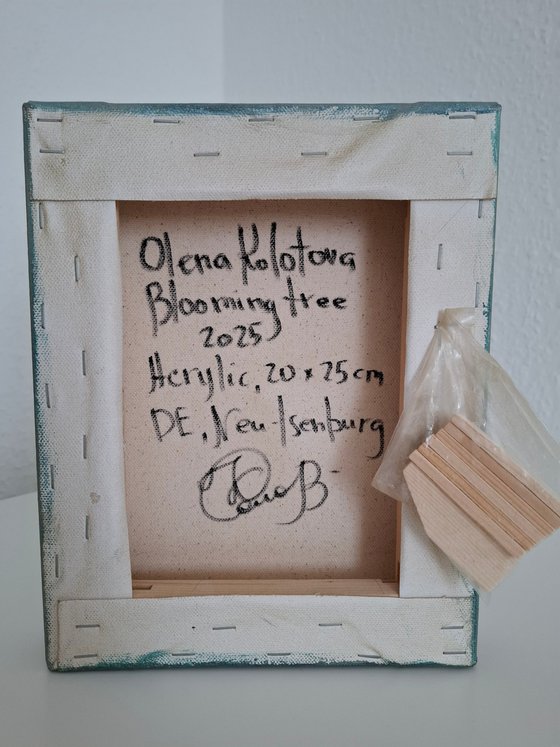 Olena Kolotova
Blooming tree
2025
Acrylic, 20 x 25 cm
DE, Neu-Isenburg